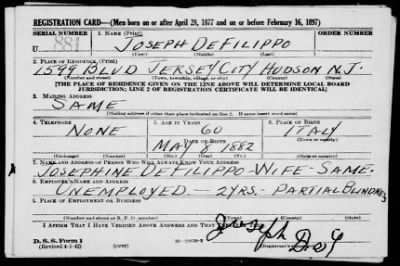 REGISTRATION CARD—(Men born on or after April 28, 1877 and on or before February 16, 1897)
SERIAL NUMBER 1. NAME (Print) ORDER NUMBER
U 881 JOSEPH DEFILIPPO
2. PLACE OF RESIDENCE (Print)
1596 BLVD JERSEY CITY HUDSON N.J.
(Number and street) (Town, township, village, or city) (County) (State)
[THE PLACE OF RESIDENCE GIVEN ON THE LINE ABOVE WILL DETERMINE LOCAL BOARD
JURISDICTION; LINE 2 OF REGISTRATION CERTIFICATE WILL BE IDENTICAL]
3. MAILING ADDRESS
SAME
[Mailing address if other than place indicated on line 2. If same insert word same]
4. TELEPHONE 5. AGE IN YEARS 6. PLACE OF BIRTH
NONE 60 ITALY
DATE OF BIRTH
MAY 8 1882
(Exchange) (Number) (Mo.) (Day) (Yr.) (State or country)
7. NAME AND ADDRESS OF PERSON WHO WILL ALWAYS KNOW YOUR ADDRESS
JOSEPHINE DEFILIPPO - WIFE - SAME
8. EMPLOYER'S NAME AND ADDRESS
UNEMPLOYED — 2YRS. - PARTIAL BLINDNESS
9. PLACE OF EMPLOYMENT OR BUSINESS
(Number and street or R. F. D. number) (Town) (County) (State)
I AFFIRM THAT I HAVE VERIFIED ABOVE ANSWERS AND THAT THEY ARE TRUE.
Joseph
D. S. S. Form 1
(Revised 4-1-42) (over)